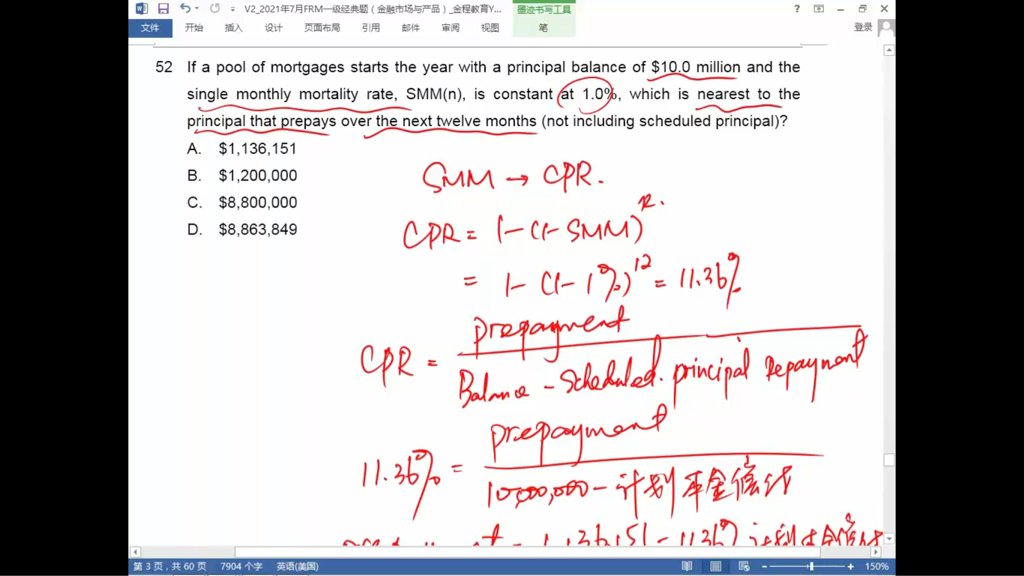 V2_2021年7月FRM一级经典题（金融市场与产品）_金程教育Y...
墨迹书写工具
?
文件 开始 插入 页面布局 引用 邮件 审阅 视图 笔 登录
52 If a pool of mortgages starts the year with a principal balance of $10.0 million and the
single monthly mortality rate, SMM(n), is constant at 1.0%, which is nearest to the
principal that prepays over the next twelve months (not including scheduled principal)?
A. $1,136,151
B. $1,200,000
C. $8,800,000
D. $8,863,849
SMM → CPR.
CPR = 1-(1-SMM)^12.
= 1-(1-1%)^12 = 11.36%
CPR = prepayment
Balance - Scheduled. principal Repayment
11.36% = prepayment
10,000,000 - 计划本金偿还
第 3 页，共 60 页 7904 个字 英语(美国) 150%